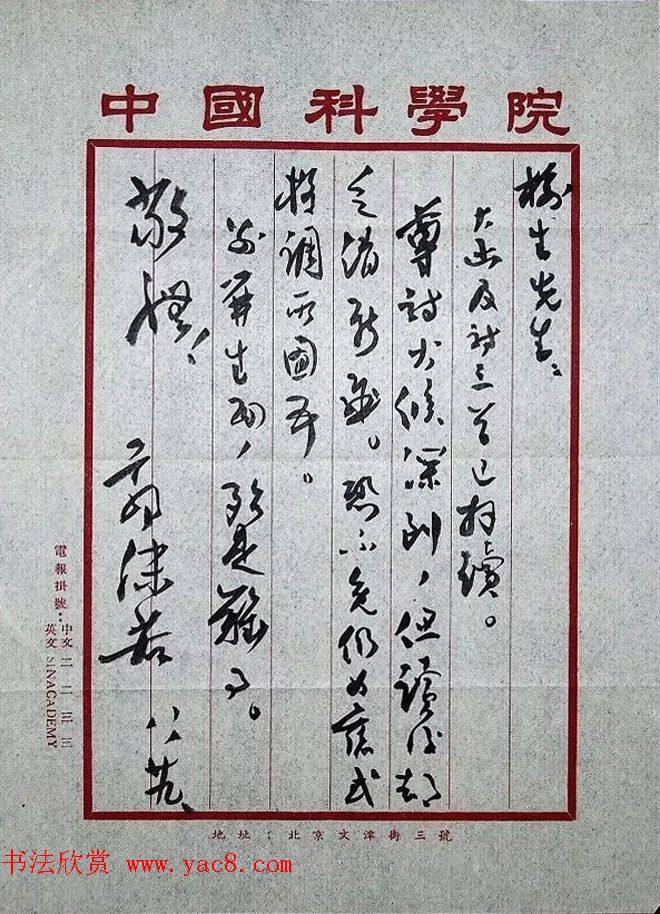 中國科學院
生先生：
大函及詩三首已拜讀。
尊詩火候深到，但讀后却
乏清新感。恐不免仍为舊式
格調所囿耳。
別開生面，是難事。
敬禮！
郭沫若 八
電報掛號：
中文 二二三三
英文 SINACADEMY
地址：北京文津街三號
书法欣赏 www.yac8.com